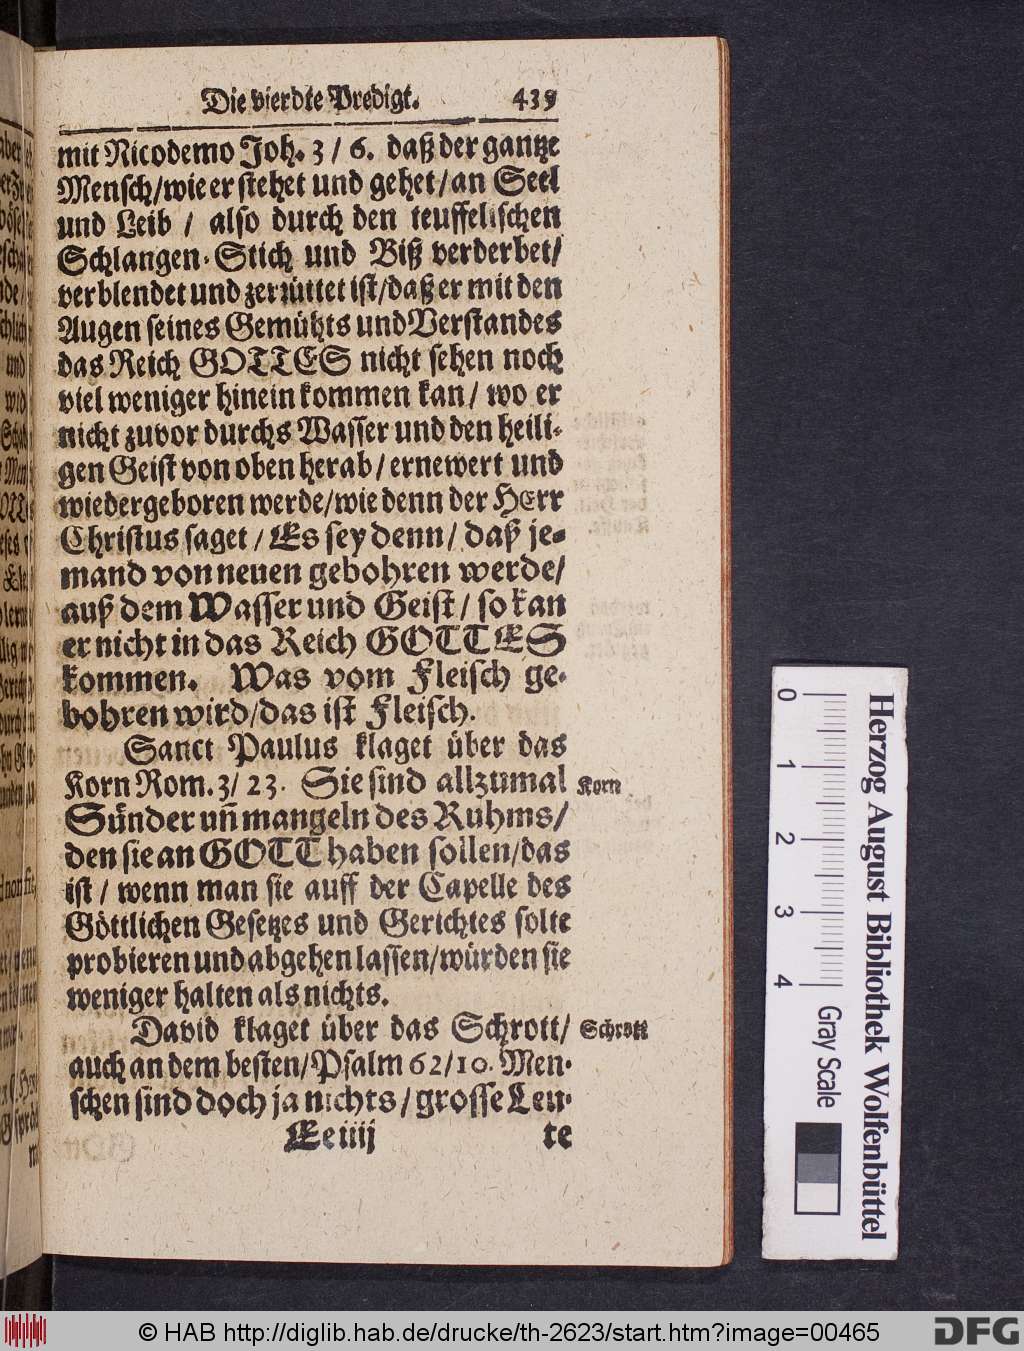 Die vierdte Predigt. 439
mit Nicodemo Joh. 3 / 6. daß der gantze
Mensch/wie er stehet und gehet/an Seel
und Leib / also durch den teuffelischen
Schlangen-Stich und Biß verderbet/
verblendet und zerrüttet ist/daß er mit den
Augen seines Gemühts und Verstandes
das Reich GOTTES nicht sehen noch
viel weniger hinein kommen kan/ wo er
nicht zuvor durchs Wasser und den heili-
gen Geist von oben herab/ernewert und
wiedergeboren werde/wie denn der HErr
Christus saget / Es sey denn/ daß je-
mand von neuen gebohren werde/
auß dem Wasser und Geist/ so kan
er nicht in das Reich GOTTES
kommen. Was vom Fleisch ge-
bohren wird/das ist Fleisch.
Sanct Paulus klaget über das
Korn Rom. 3/ 23. Sie sind allzumal Korn
Sünder uñ mangeln des Ruhms/
den sie an GOTT haben sollen/das
ist / wenn man sie auff der Capelle des
Göttlichen Gesetzes und Gerichtes solte
probieren und abgehen lassen/würden sie
weniger halten als nichts.
David klaget über das Schrott/ Schrott
auch an dem besten/Psalm 62/10. Men-
schen sind doch ja nichts/grosse Leu-
Ee iiij te
0
1
2
3
4
Gray Scale
Herzog August Bibliothek Wolfenbüttel
© HAB http://diglib.hab.de/drucke/th-2623/start.htm?image=00465
DFG